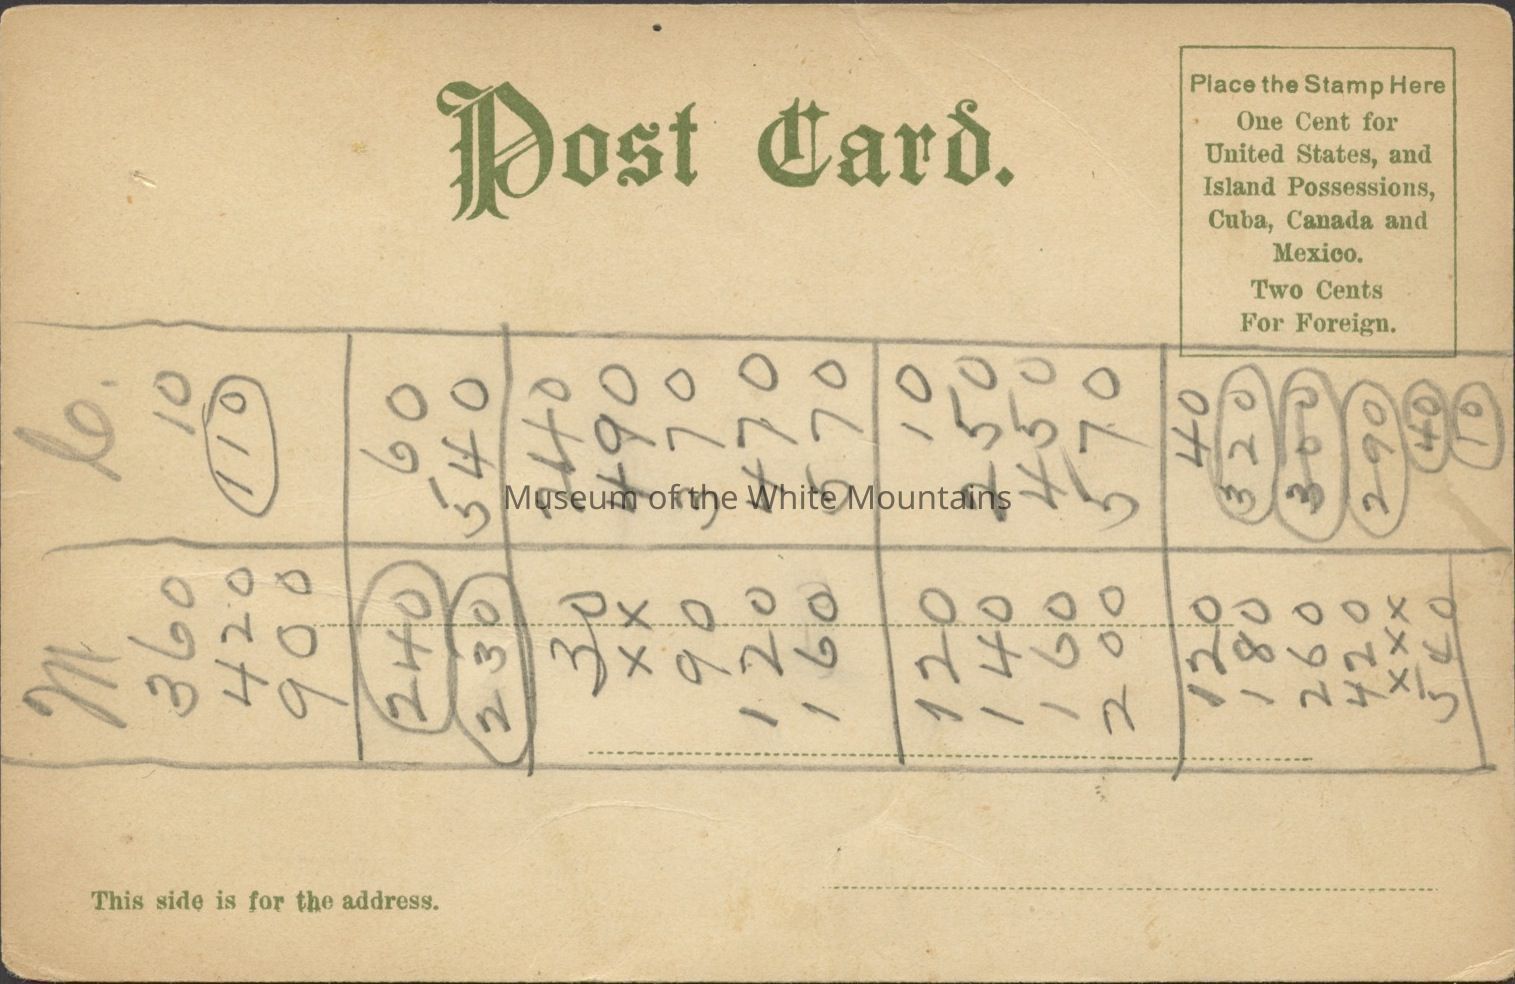 Post Card.
Place the Stamp Here
One Cent for
United States, and
Island Possessions,
Cuba, Canada and
Mexico.
Two Cents
For Foreign.
M C.
360 10
420 110
900
240 60
230 540
30 240
xx 490
90 370
120 470
160 570
120 10
140 250
160 450
200 570
120 40
180 320
260 300
420 290
xxx 40
540 10
Museum of the White Mountains
This side is for the address.